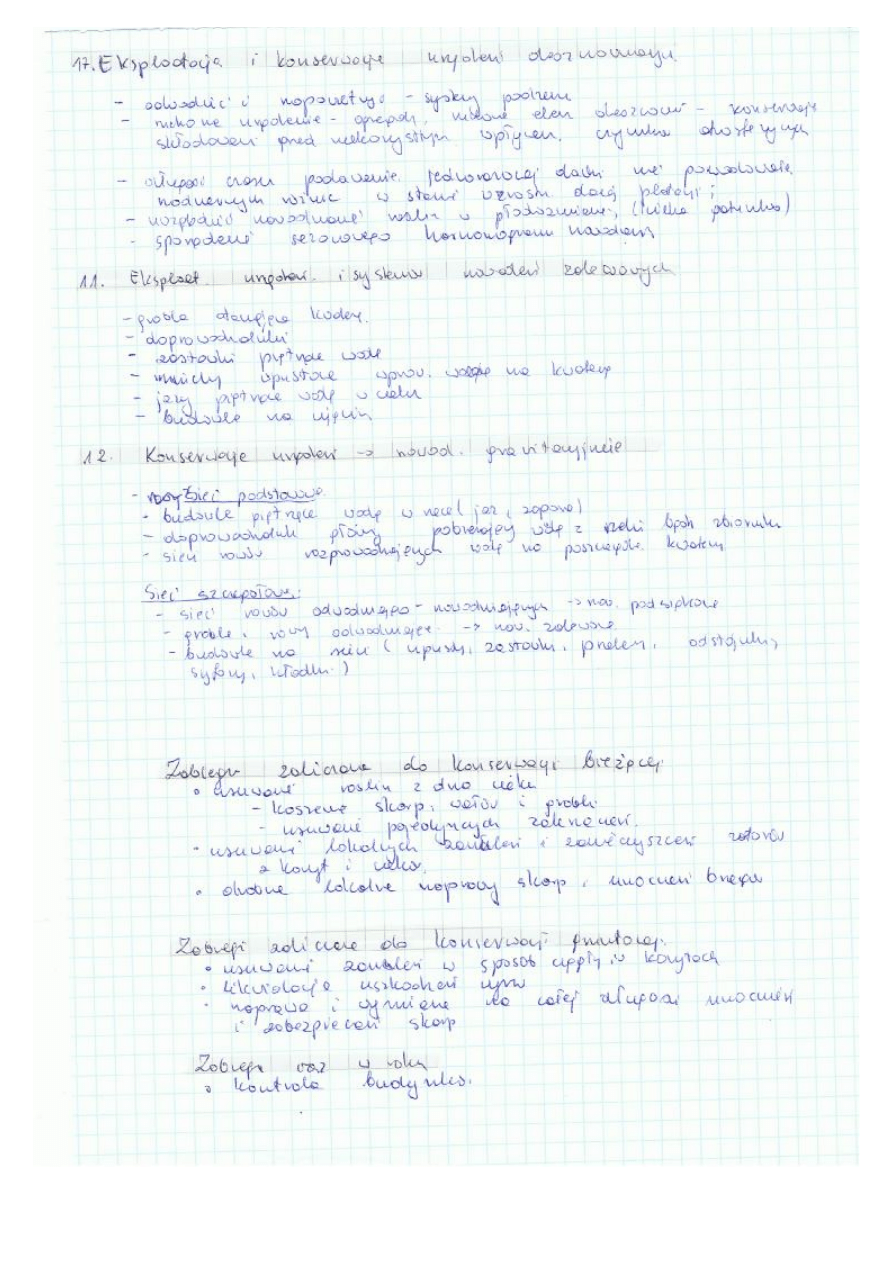 17. Eksploatacja i konserwacja urządzeń deszczownianych
- odwodnić i napowietrzyć - system podziem
- ruchome urządzenie - 
składowań przed niekorzystnym wpływem, czynników
- długość czasu podawania jednorazowej dawki nie powodowała
nadmiernych różnic w stanie wzrostu danej plantacji
- nawodnianie roślin w płodozmianie,
- sporządzenie sezonowego harmonogramu nawodnień
11. Eksploat. urządzeń i systemów nawodnień zalewowych
- groble
- doprowadzalniki
- zastawki piętrzące wodę
- mnichy upustowe wprow. wodę na kwaterę
- jazy piętrzące wodę w cieku
- budowle na ujęciu
12. Konserwacja urządzeń -> nawod. grawitacyjnie
- sieć podstawowa
- budowle piętrzące wodę w rzece (jaz, zapora)
- doprowadzalnik główny pobierający wodę z rzeki bądź zbiornika
- sieci rowów rozprowadzających wodę na poszczególne kwatery
Sieć szczegółowa:
- sieć rowów odwadniająco - nawadniających -> naw. podsiąkowe
- groble i rowy odwadniające -> naw. zalewowe
- budowle na sieci (upusty, zastawki, przelewy, odstojniki,
syfony, kładki)
Zabiegi zaliczane do konserwacji bieżącej
• usuwanie roślin z dna cieku
- koszenie skarp, wałów i grobli
- usuwanie pojedynczych zakrzaczeń.
• usuwanie lokalnych zamuleń i zanieczyszczeń zatorów
z koryt i cieków.
• drobne lokalne naprawy skarp i umocnień brzegów
Zabiegi zaliczane do konserwacji gruntowej
• usuwanie zamuleń w sposób ciągły w korytach
• likwidacja uszkodzeń
• naprawa i wymiana na całej długości umocnień
i zabezpieczeń skarp
Zabiegi raz w roku
• kontrola budynków.